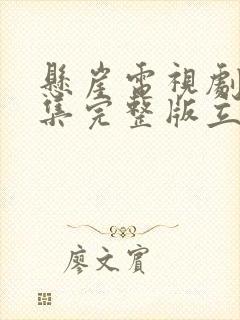 懸崖電視劇
集完整版立
廖文賓